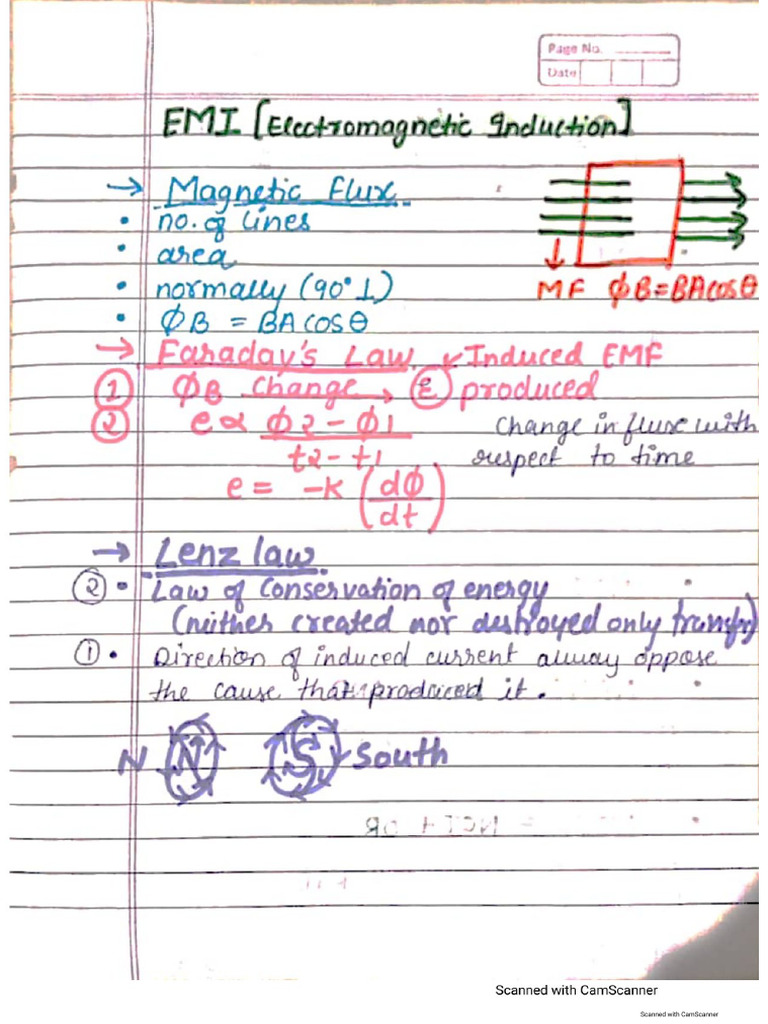 Page No.
Date
EMI [Electromagnetic Induction]
→ Magnetic Flux
• no. of lines
• area
• normally (90° ⊥)
• ϕB = BA cosθ
MF ϕB = BA cosθ
→ Faraday's Law
Induced EMF
① ϕB change → Ɛ produced
② e ∝ ϕ2 - ϕ1
t2 - t1
change in flux with
respect to time
e = -K (dϕ
dt)
→ Lenz law
② • Law of Conservation of energy
(neither created nor destroyed only transfer)
① • Direction of induced current alway oppose
the cause that produced it.
N N S South
Scanned with CamScanner
Scanned with CamScanner